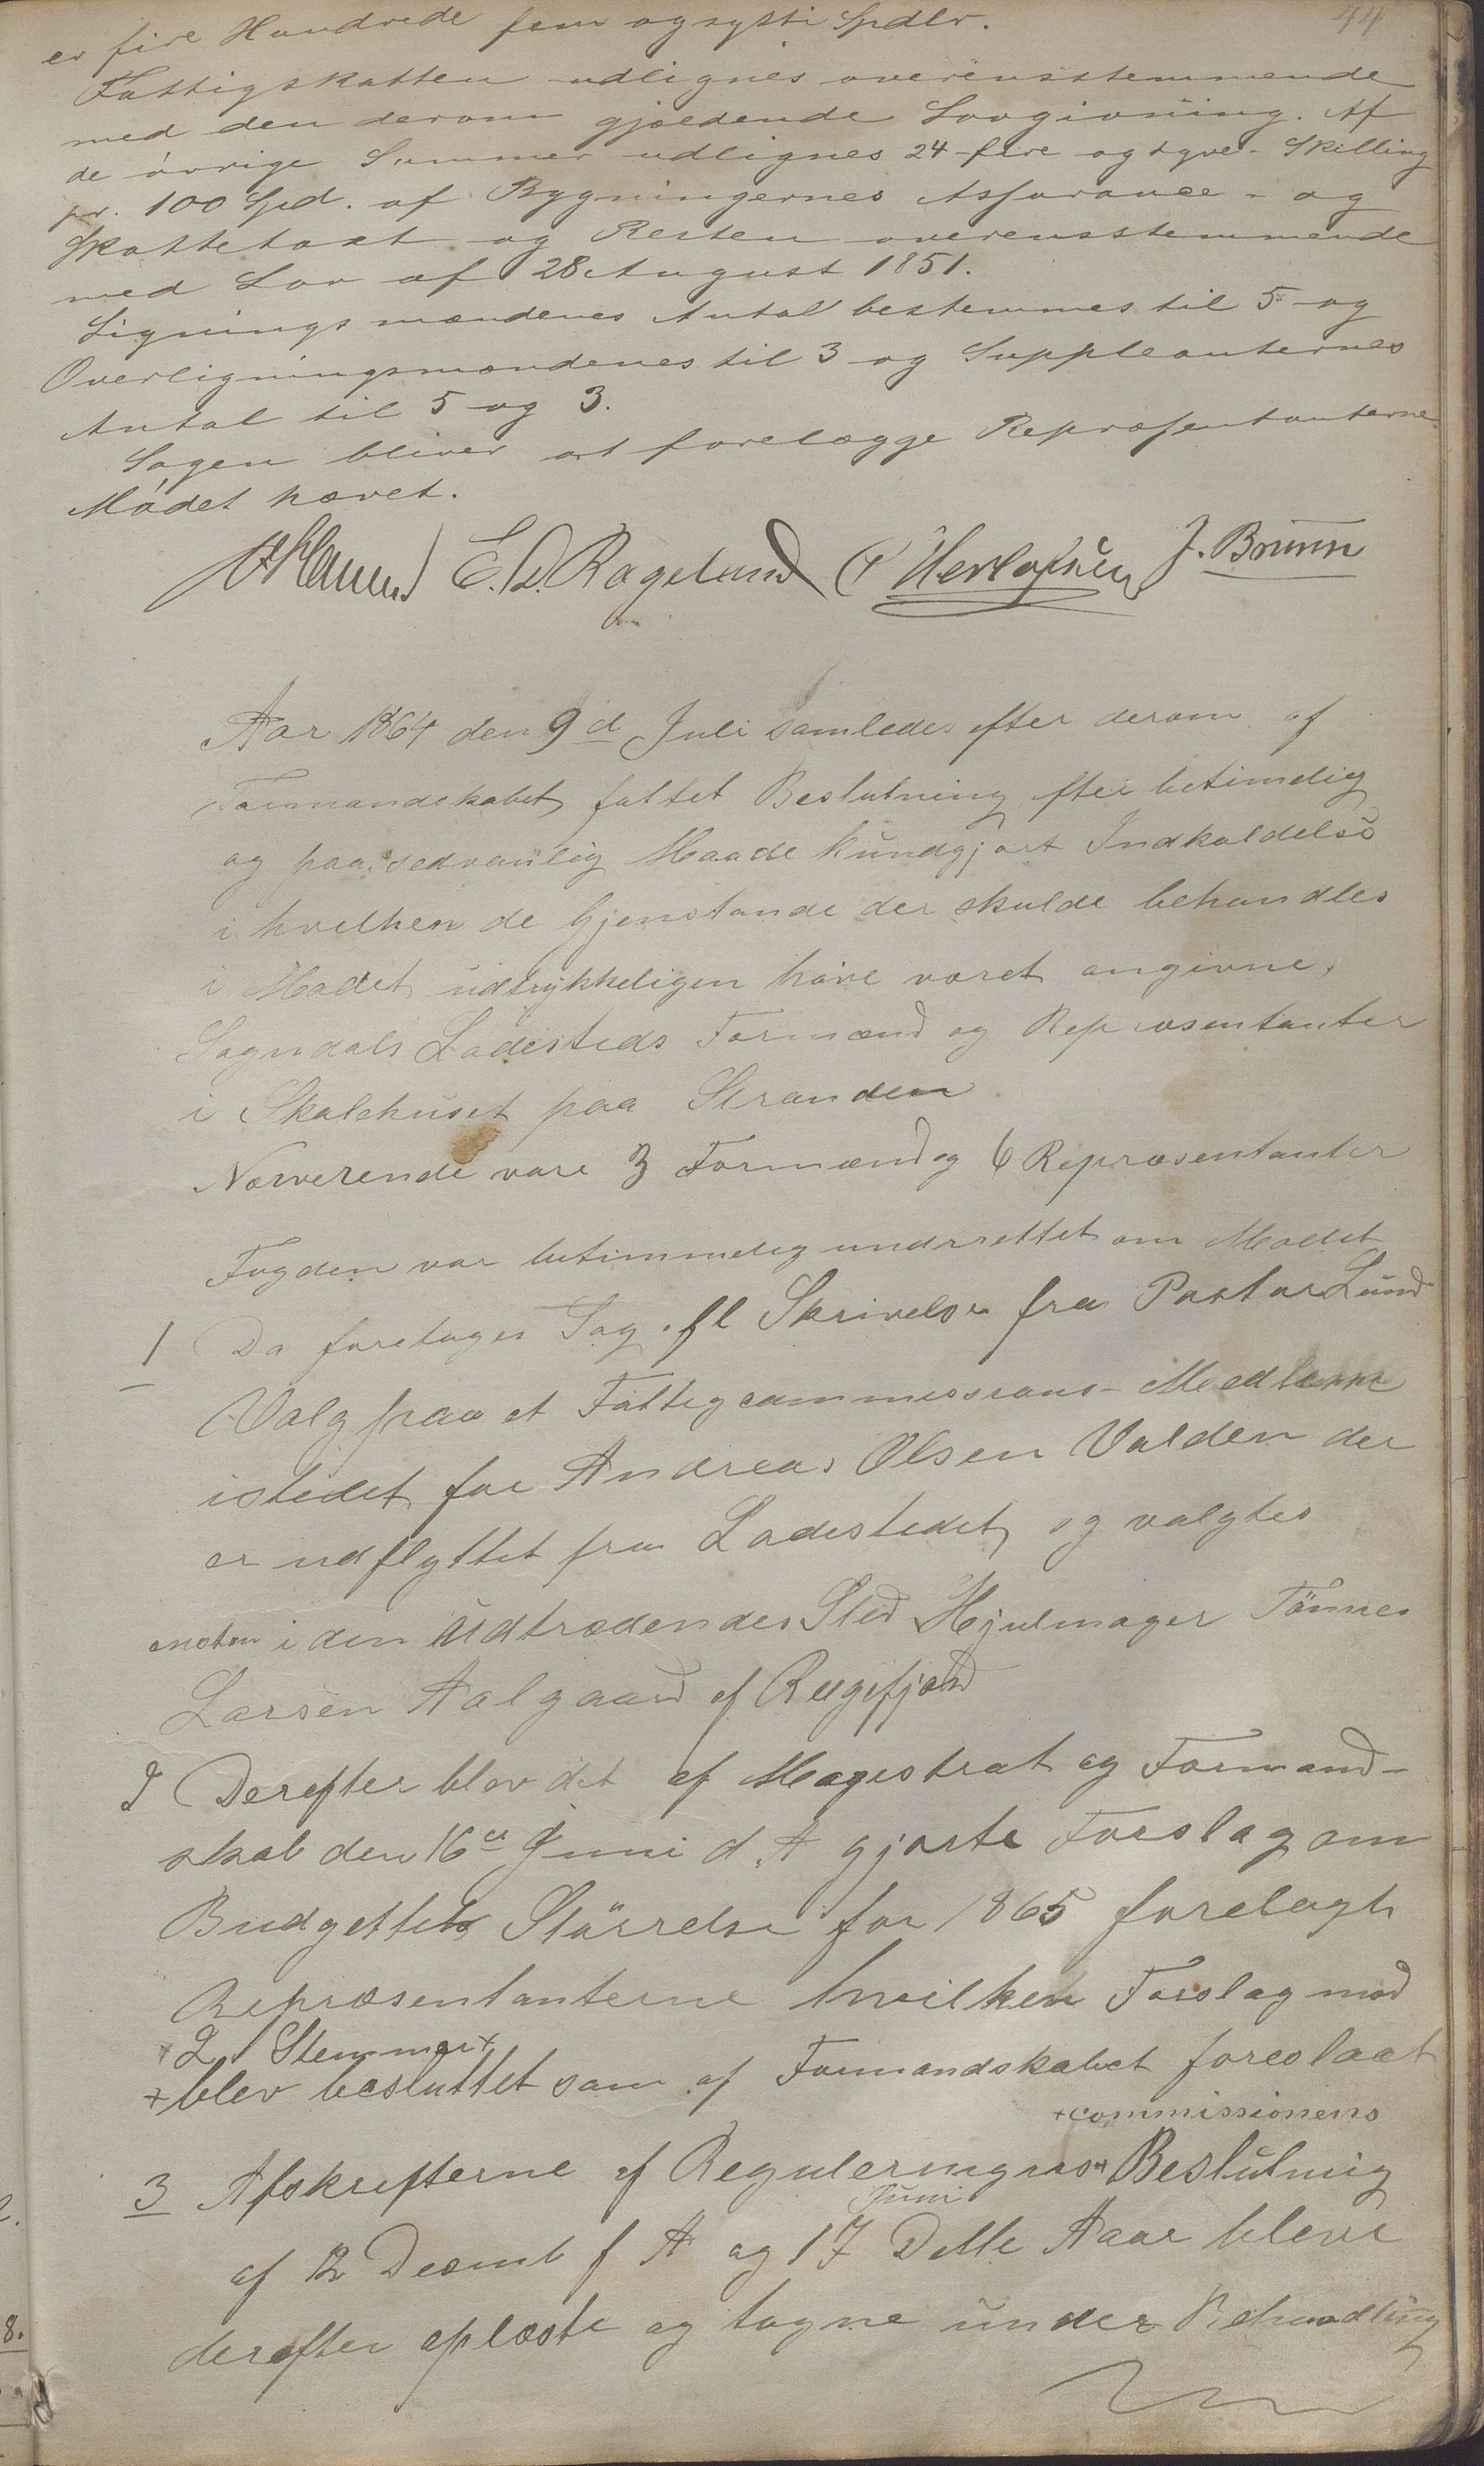 44
er fire Hundrede fem og sytti Spdlr.
Fattigskatten udlignes overensstemmende
med den derom gjældende Lovgivning. Af
de øvrige Summer udlignes 24 - fire og tyve - Skilling
pr. 100 Spd. af Bygningernes Assurance - og
Skattetaxt og Resten overensstemmende
med Lov af 28 August 1851.
Ligningsmændenes Antal bestemmes til 5 og
Overligningsmændenes til 3 og Suppleanternes
Antal til 5 og 3.
Sagen bliver at forelægge Repræsentanterne.
Mødet hævet.
E. D. Rageland Herlofsen J. Brunn
Aar 1864 den 9d Juli samledes efter derom af
Formandskabet fattet Beslutning efter betimelig
og paa sedvanlig Maade kundgjort Indkaldelse
i hvilken de Gjenstande der skulde behandles
i Mødet udtrykkeligen have været angivne,
Sogndals Ladesteds Formænd og Repræsentanter
i Skolehuset paa Stranden
Nærverende vare 3 Formænd og 6 Repræsentanter
Fogden var betimmelig undrettet om Mødet
1 Da foretoges Sag. fl Skrivelse fra Pastor Lund
Valg paa et Fattigcommissions-Medlem
istedet for Andreas Olsen Valden der
er udflyttet fra Ladestedet og valgtes
i den Udtrædendes Sted Hjulmager Tönnes
Larsen Aalgaard af Regefjord
2 Derefter blev det af Magistrat og Formand-
skab den 16de Juni d. A gjorte Forslag om
Budgettets Störrelse for 1865 forelagt
Repræsentanterne hvilken Forslag mod
+ 2 Stemmer +
+ blev besluttet som af Formandskabet foreslaaet
+ commissionens
3 Afskrifterne af Regulerings + Beslutning
Juni
af 12 Decmb f A og 17 Dette Aar bleve
derefter oplæste og tagne under Behandling